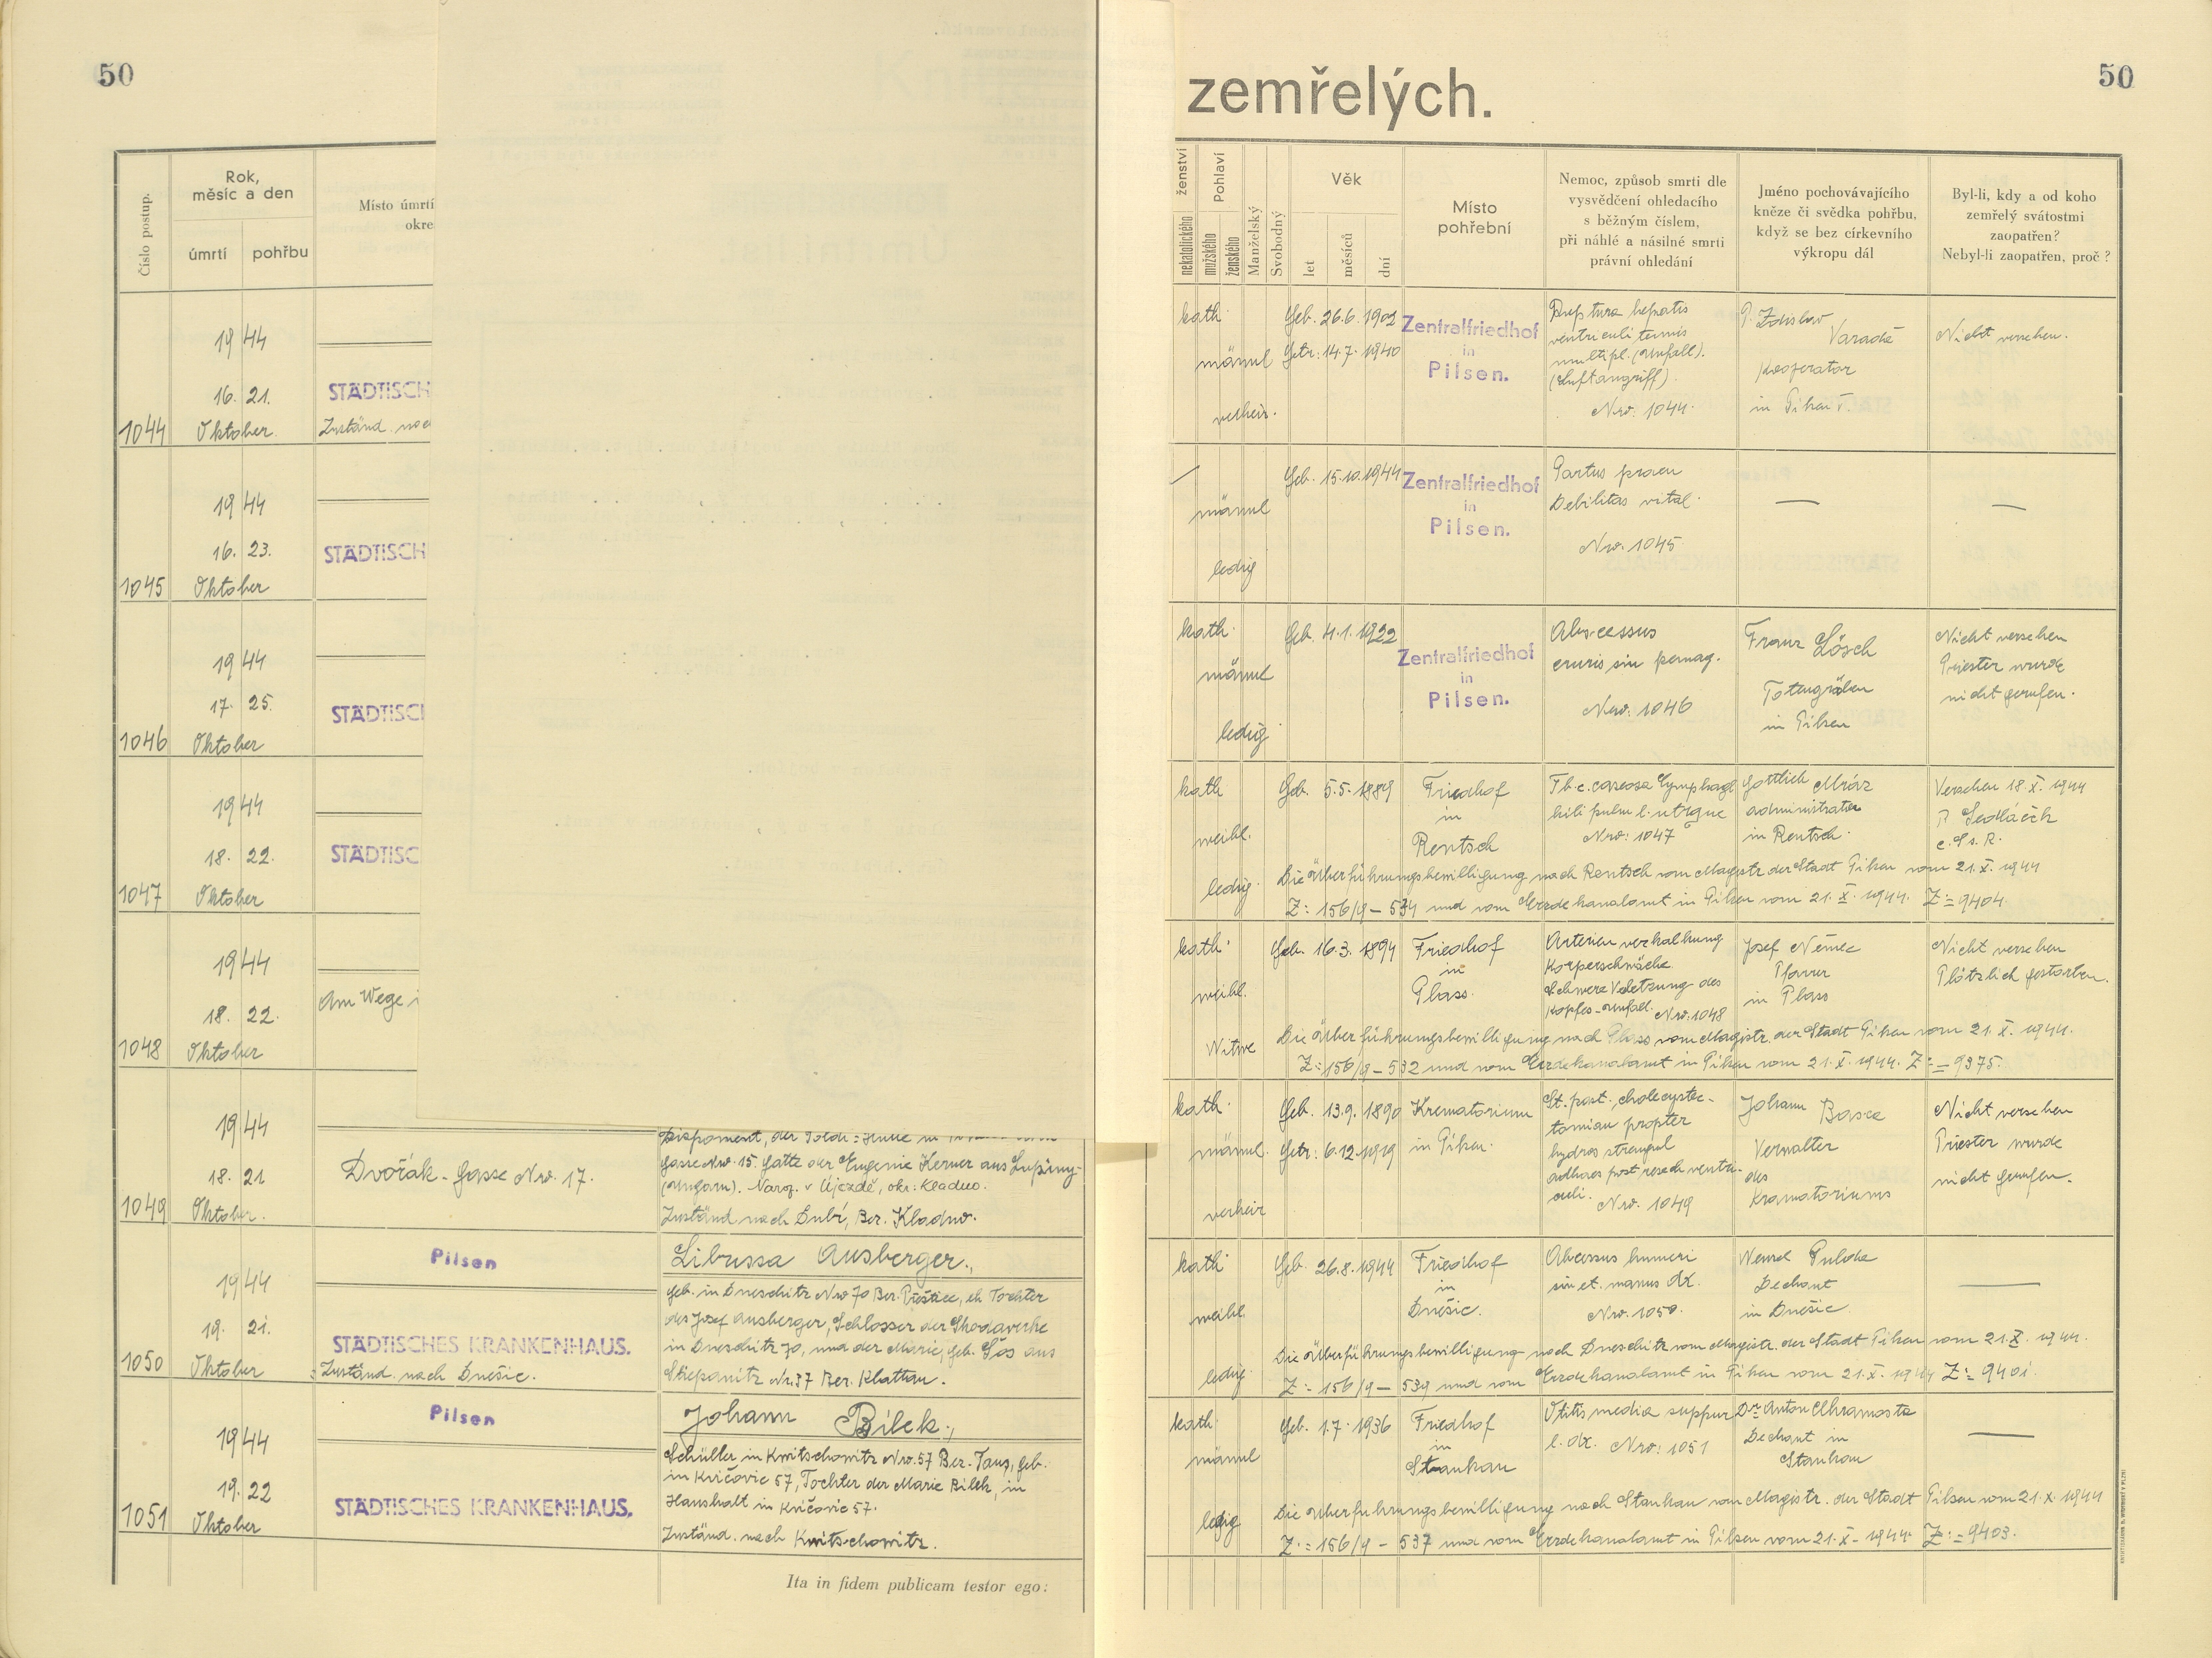 50
50
zemřelých.
Číslo postup.
Rok,
měsíc a den
úmrtí
pohřbu
Místo úmrtí
okre
ženství
nekatolického
Pohlaví
mužského
ženského
Manželský
Svobodný
Věk
let
měsíců
dní
Místo
pohřební
Nemoc, způsob smrti dle
vysvědčení ohledacího
s běžným číslem,
při náhlé a násilné smrti
právní ohledání
Jméno pochovávajícího
kněze či svědka pohřbu,
když se bez církevního
výkropu dál
Byl-li, kdy a od koho
zemřelý svátostmi
zaopatřen?
Nebyl-li zaopatřen, proč?
1044
1944
16. 21.
Oktober
STÄDTISCH
Zuständ. nac
kath.
männl
verheir.
Geb. 26.6. 1902
Getr: 14.7. 1940
Zentralfriedhof
in
Pilsen.
Ruptura hepatis
ventriculi
multipl. (Unfall).
(Luftangriff).
Nro. 1044.
P. Zdislav
Kooperator
in Pilsen
Nicht versehen.
1045
1944
16. 23.
Oktober
STÄDTISCH
männl
ledig
Geb. 15.10.1944
Zentralfriedhof
in
Pilsen.
Partus praem
Debilitas vital.
Nro. 1045
—
—
1046
1944
17. 25.
Oktober
STÄDTISC
kath.
männl
ledig.
Geb. 4.1.1922
Zentralfriedhof
in
Pilsen.
Abscessus
cruris sin
Nro: 1046
Franz Lösch
Totengräber
in Pilsen
Nicht versehen
Priester wurde
nicht gerufen.
1047
1944
18. 22.
Oktober
STÄDTISC
kath
weibl.
ledig.
Geb. 5.5.1889
Friedhof
in
Rentsch
Tb.c. caseosa lymphogl
hili pulm l. utrque
Nro: 1047
Gottlieb Mráz
administrator
in Rentsch.
Versehen 18.X. 1944
P. Sedláček
c.Ss.R.
Die Überführungsbewilligung nach Rentsch vom Magistr. der Stadt Pilsen vom 21.X. 1944
Z: 156/9 - 534 und vom Erzdekanalamt in Pilsen vom 21.X. 1944. Z:= 9404.
1048
1944
18. 22.
Oktober
Am Wege i
kath.
weibl.
Witwe
Geb. 16.3. 1894
Friedhof
in
Plass.
Arterien verkalkung
Körperschwäche
Schwere Verletzung des
Kopfes-Unfall. Nro: 1048
Josef Němec
Pfarrer
in Plass
Nicht versehen
Plötzlich gestorben.
Die Überführungsbewilligung nach Plass vom Magistr. der Stadt Pilsen vom 21.X. 1944.
Z:= 156/9 - 532 und vom Erzdekanalamt in Pilsen vom 21.X. 1944. Z:= 9375.
1049
1944
18. 21
Oktober.
Dvořák-Gasse Nro. 17.
Disponent, der Poldi-Hütte in
Gasse Nro. 15. Gatte der Eugenie Kerner aus
(Ungarn). Naroz. v Újezdě, okr: Kladno.
Zuständ. nach Dubí, Ber. Kladno.
kath.
männl.
verheir
Geb. 13.9. 1890
Getr: 6.12.1919
Krematorium
in Pilsen.
St. post. cholecystec-
tomiam propter
hydrops
adhaes post resech ventri-
culi. Nro. 1049
Johann
Verwalter
des
Krematoriums
Nicht versehen
Priester wurde
nicht gerufen.
1050
1944
19. 21.
Oktober
Pilsen
STÄDTISCHES KRANKENHAUS.
Zuständ. nach Dnešic.
Libussa Ausberger.,
geb. in Dneschitz Nro 70 Ber. Přeštice, eh Tochter
des Josef Ausberger, Schlosser der Skodawerke
in Dneschitz 70, und der Marie, geb. aus
Stiepanitz Nr.37 Ber. Klattau.
kath
weibl.
ledig.
Geb. 26.8.1944
Friedhof
in
Dnešic.
Abcessus humeri
sin et. manus dx.
Nro. 1050.
Wenzel
Dechant
in Dnešic.
Die Überführungsbewilligung nach Dneschitz vom Magistr. der Stadt Pilsen vom 21.X. 1944.
Z:= 156/9 - 539 und vom Erzdekanalamt in Pilsen vom 21.X. 1944 Z:= 9401.
1051
1944
19. 22
Oktober
Pilsen
STÄDTISCHES KRANKENHAUS.
Johann Bílek.,
Schüller in Kwitschowitz Nro. 57 Ber. Taus, geb.
in Kvíčovic 57, Tochter der Marie Bílek, in
Haushalt in Kvíčovic 57.
Zuständ. nach Kwitschowitz.
kath.
männl
ledig
Geb. 1.7. 1936
Friedhof
in
Stankau
Otitis media suppur
l. dx. Nro: 1051
Dr. Anton Chramosta
Dechant in
Stankau
Die Überführungsbewilligung nach Stankau vom Magistr. der Stadt Pilsen vom 21.X.1944
Z:= 156/9 - 537 und vom Erzdekanalamt in Pilsen vom 21.X. 1944. Z:= 9403.
Ita in fidem publicam testor ego: